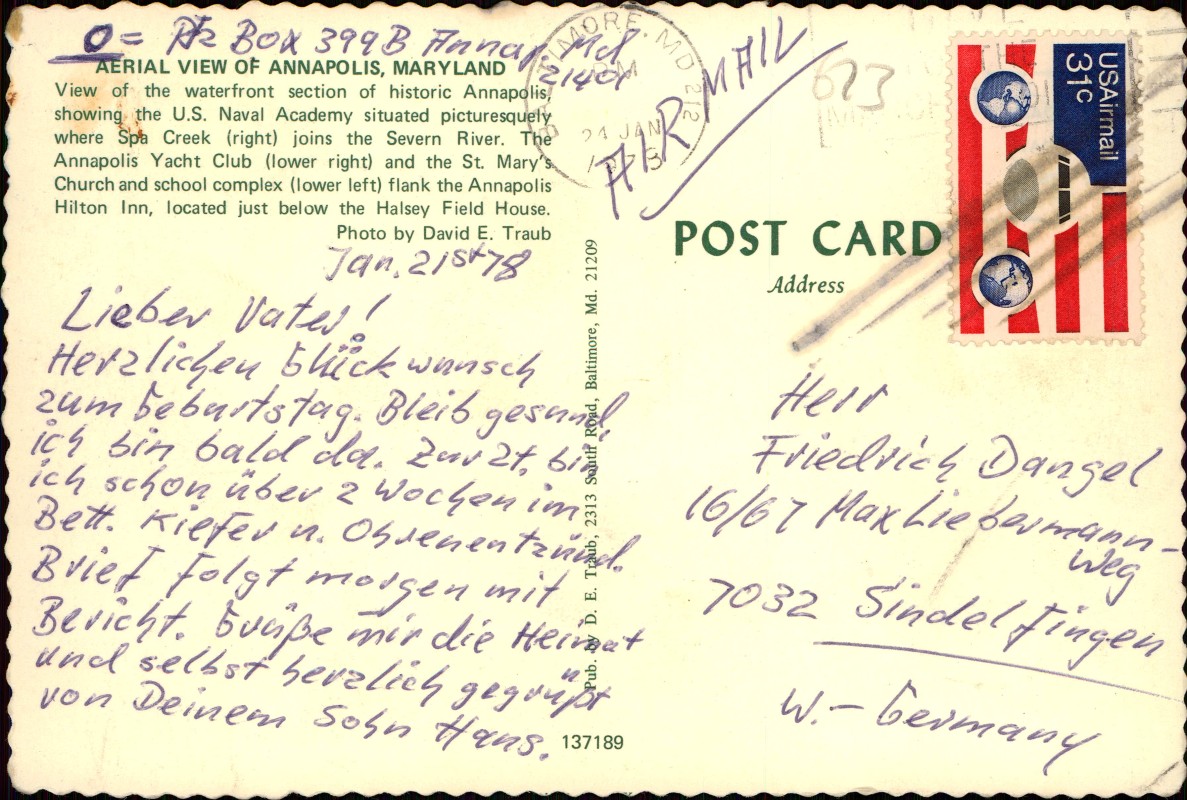 O = Rt2 Box 399B Annap. Md
21401
AERIAL VIEW OF ANNAPOLIS, MARYLAND
View of the waterfront section of historic Annapolis,
showing the U.S. Naval Academy situated picturesquely
where Spa Creek (right) joins the Severn River. The
Annapolis Yacht Club (lower right) and the St. Mary's
Church and school complex (lower left) flank the Annapolis
Hilton Inn, located just below the Halsey Field House.
Photo by David E. Traub
Jan. 21st 78
Lieber Vater!
Herzlichen Glückwunsch
zum Geburtstag. Bleib gesund,
ich bin bald da. Zur Zt. bin
ich schon über 2 Wochen im
Bett. Kiefer u. Ohrenentzünd.
Brief folgt morgen mit
Bericht. Grüße mir die Heimat
und selbst herzlich gegrüßt
von Deinem Sohn Hans.
137189
Pub. by D. E. Traub, 2313 South Road, Baltimore, Md. 21209
BALTIMORE, MD 212
21 JAN
AIR MAIL
673
USAirmail
31c
POST CARD
Address
Herr
Friedrich Dangel
16/67 Max Liebermann-
Weg
7032 Sindelfingen
W.- Germany